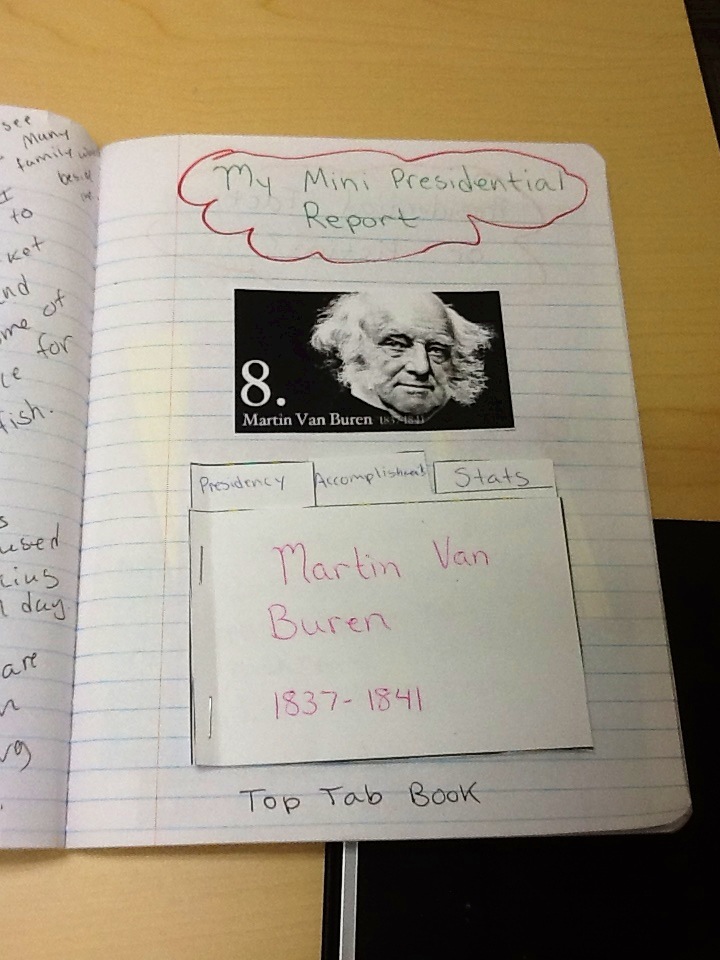 see
Many
family
I
to
ket
nd
me of
for
ce
fish.
s
used
cius
day
are
n
My Mini Presidential
Report
8.
Martin Van Buren 1837-1841
Presidency Accomplishment Stats
Martin Van
Buren
1837-1841
Top Tab Book